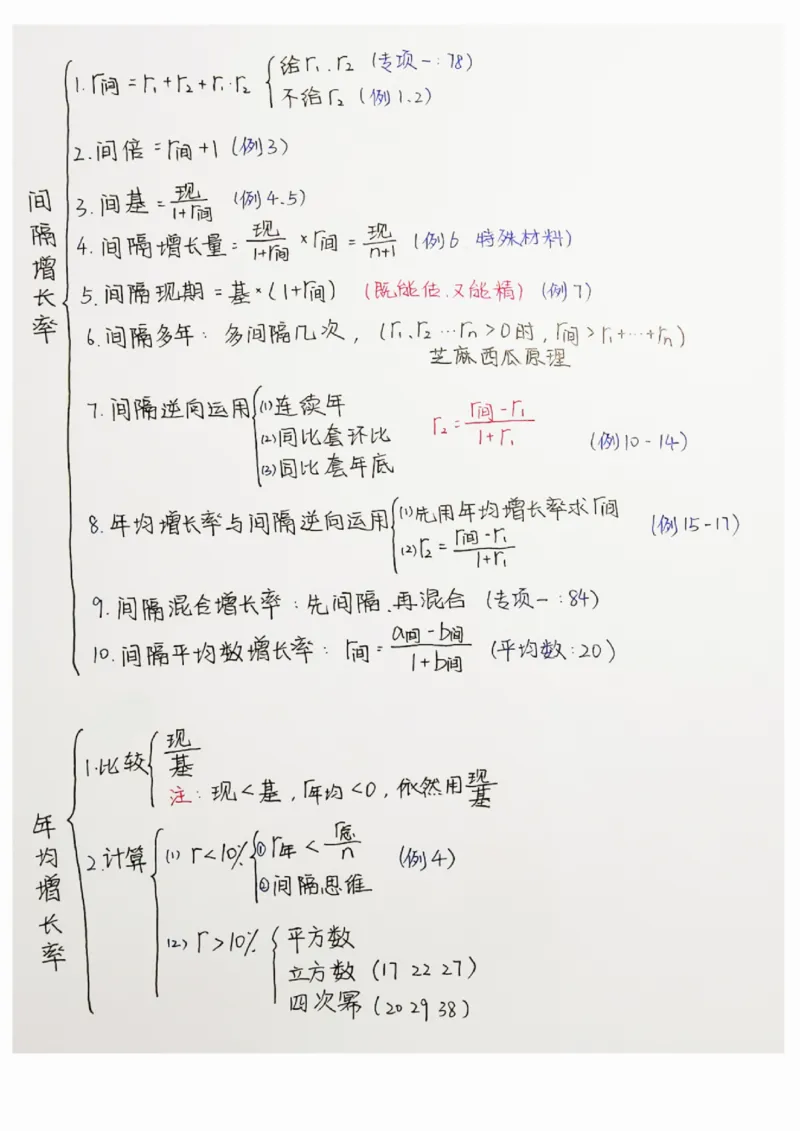 间隔增长率
1. r间 = r₁ + r₂ + r₁·r₂ { 给r₁、r₂ (专项一:78)
不给r₂ (例1.2)
2. 间倍 = r间 + 1 (例3)
3. 间基 = 现/(1+r间) (例4.5)
4. 间隔增长量 = 现/(1+r间) × r间 = 现/(n+1) (例6 特殊材料)
5. 间隔现期 = 基×(1+r间) (既能估,又能精) (例7)
6. 间隔多年: 多间隔几次, (r₁、r₂…rₙ>0时, r间>r₁+…+rₙ)
芝麻西瓜原理
7. 间隔逆向运用 { (1)连续年
(2)同比套环比
(3)同比套年底
r₂ = (r间-r₁)/(1+r₁) (例10-14)
8. 年均增长率与间隔逆向运用 { (1)先用年均增长率求r间
(2) r₂ = (r间-r₁)/(1+r₁)
(例15-17)
9. 间隔混合增长率: 先间隔,再混合 (专项一:84)
10. 间隔平均数增长率: r间 = (a间-b间)/(1+b间) (平均数:20)
年均增长率
1. 比较 { 现/基
注: 现<基, r年均<0, 依然用现/基
2. 计算 { (1) r<10% { ① r年 < r总/n (例4)
②间隔思维
(2) r>10% { 平方数
立方数 (17 22 27)
四次幂 (20 29 38)